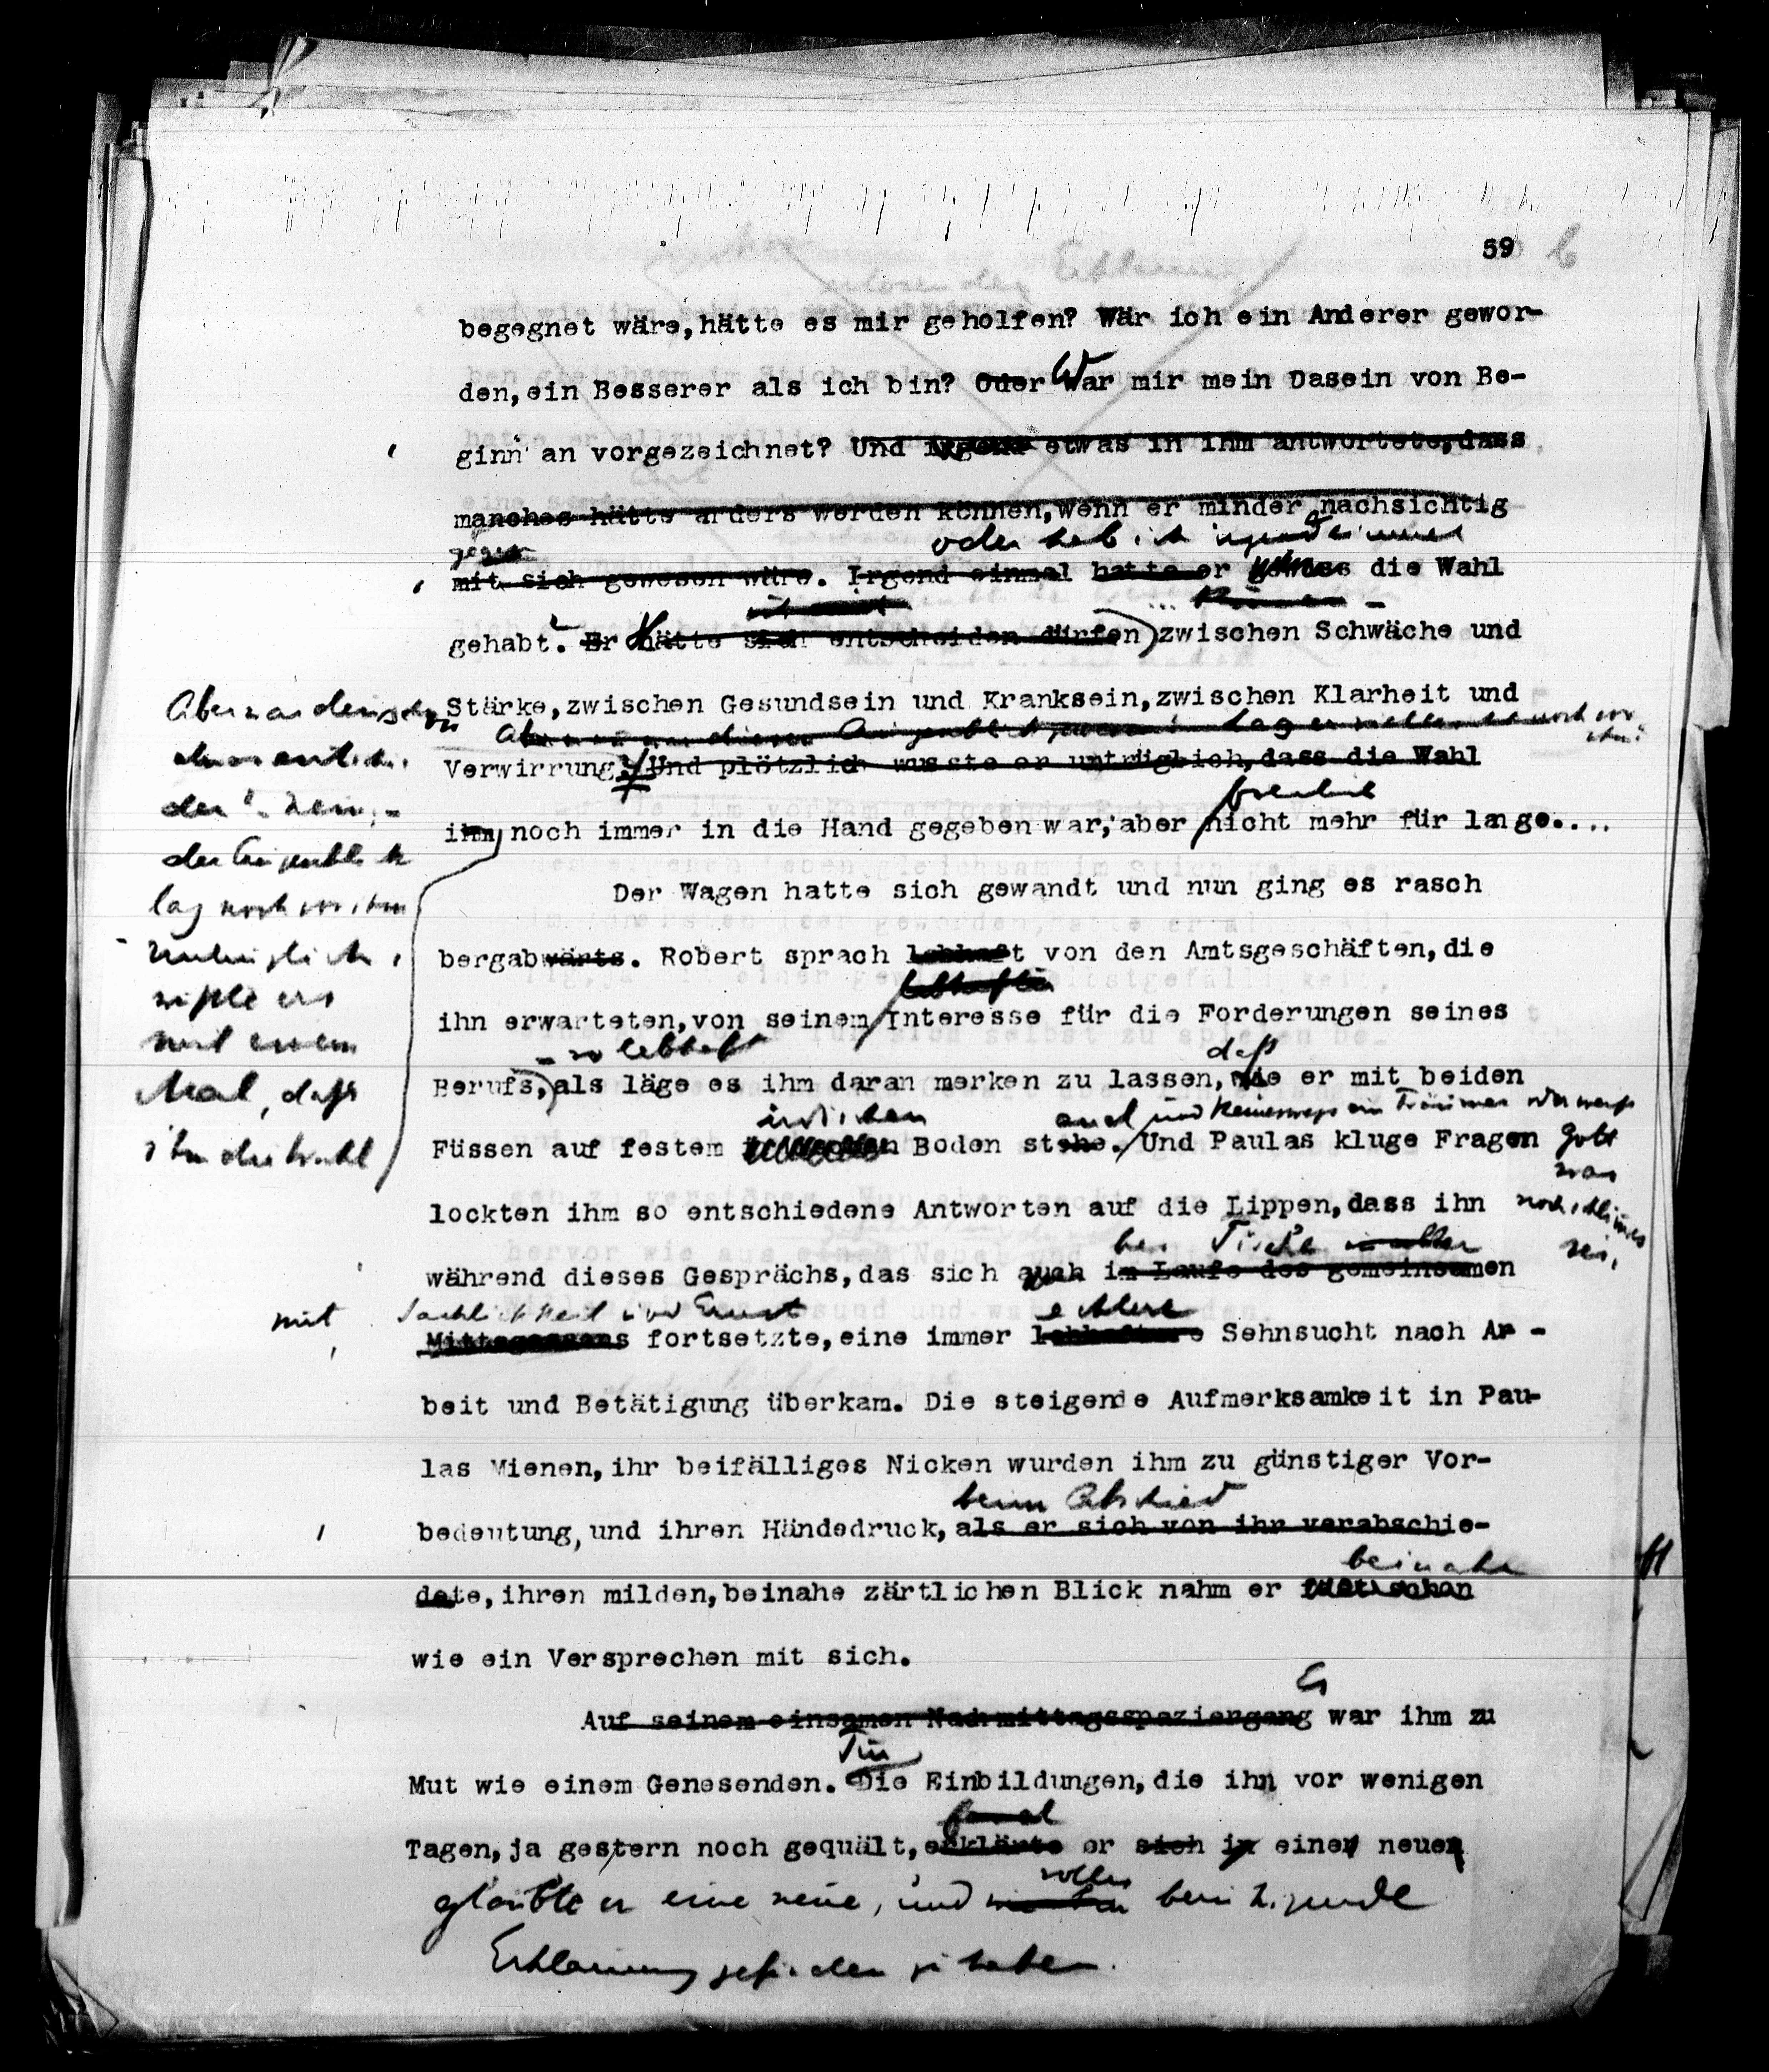 59
begegnet wäre, hätte es mir geholfen? Wär ich ein Anderer gewor-
den, ein Besserer als ich bin? Oder War mir mein Dasein von Be-
ginn an vorgezeichnet? Und irgend etwas in ihm antwortete, dass
manches hätte anders werden können, wenn er minder nachsichtig
gegen oder hab ich irgend einmal
mit sich gewesen wäre. Irgend einmal hatte er die Wahl
gehabt. Er hätte sich entscheiden dürfen zwischen Schwäche und
Stärke, zwischen Gesundsein und Kranksein, zwischen Klarheit und
Verwirrung? Und plötzlich wusste er untrüglich, dass die Wahl
freilich
ihm noch immer in die Hand gegeben war, aber nicht mehr für lange....
der Augenblick
lag noch vor ihm
untrüglich,
wußte er
mit einem
Mal, daß
ihm die Wahl
Der Wagen hatte sich gewandt und nun ging es rasch
bergabwärts. Robert sprach lebhaft von den Amtsgeschäften, die
lebhaften
ihn erwarteten, von seinem Interesse für die Forderungen seines
- so lebhaft daß
Berufs, als läge es ihm daran merken zu lassen, wie er mit beiden
irdischen und keineswegs ein Träumer oder weiß
Füssen auf festem Boden stehe. Und Paulas kluge Fragen Gott
was
lockten ihm so entschiedene Antworten auf die Lippen, dass ihn noch schlimmeres
bei Tische sei,
während dieses Gesprächs, das sich auch im Laufe des gemeinsamen
mit Sachlichkeit und Ernst echtere
Mittagessens fortsetzte, eine immer lebhaftere Sehnsucht nach Ar-
beit und Betätigung überkam. Die steigende Aufmerksamkeit in Pau-
las Mienen, ihr beifälliges Nicken wurden ihm zu günstiger Vor-
beim Abschied
bedeutung, und ihren Händedruck, als er sich von ihr verabschie-
beinahe
dete, ihren milden, beinahe zärtlichen Blick nahm er fast schon
wie ein Versprechen mit sich.
Es
Auf seinem einsamen Nachmittagsspaziergang war ihm zu
Für
Mut wie einem Genesenden. Die Einbildungen, die ihn vor wenigen
fand
Tagen, ja gestern noch gequält, erklärte er sich in einer neuen
voller
glaubte er eine neue, und beruhigende
Erklärung gefunden zu haben.